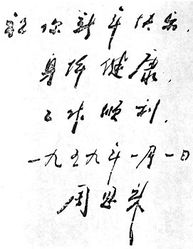 祝你新年快乐，
身体健康，
工作顺利。
一九五九年一月一日
周恩来